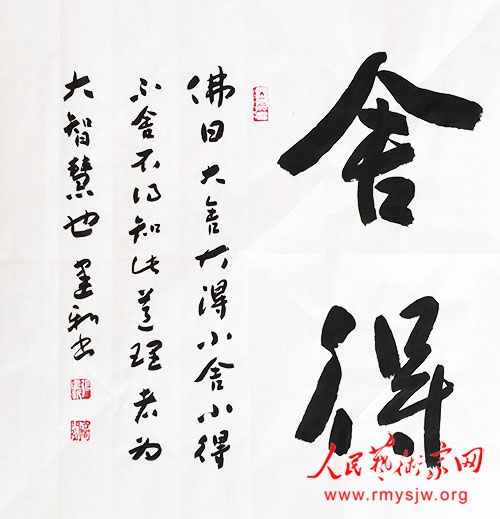 舍得
佛曰大舍大得小舍小得
不舍不得知此道理者为
大智慧也 书
人民藝術家网
www.rmysjw.org